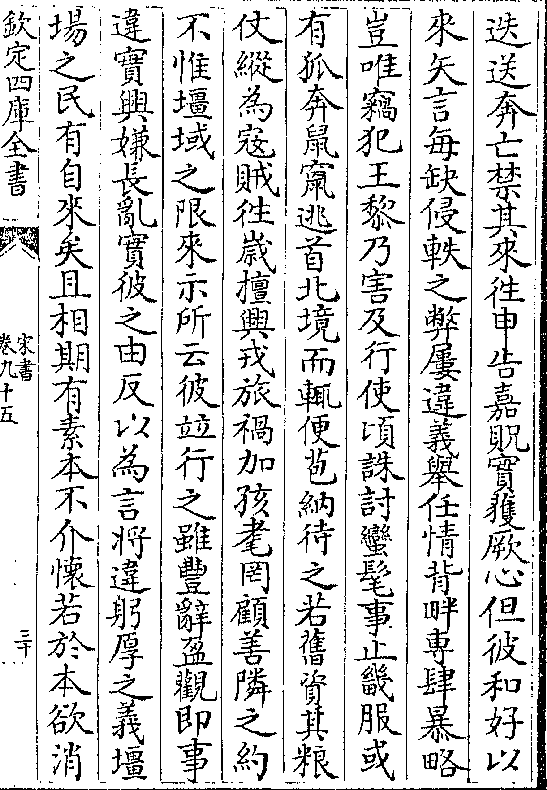 迭送奔亡禁其來往申告嘉貺實獲厥心但彼和好以
來矢言每缺侵軼之弊屢違義舉任情背畔專肆暴略
豈唯竊犯王黎乃害及行使頃誅討蠻髦事止畿服或
有狐奔鼠竄逃首北境而輒便苞納待之若舊資其粮
仗縱為寇賊往歲擅興戎旅禍加孩耄罔顧善隣之約
不惟壃域之限來示所云彼竝行之雖豐辭盈觀即事
違實興嫌長亂實彼之由反以為言將違躬厚之義壃
場之民有自來矣且相期有素本不介懷若於本欲消
欽定四庫全書
宋書
卷九十五
三十